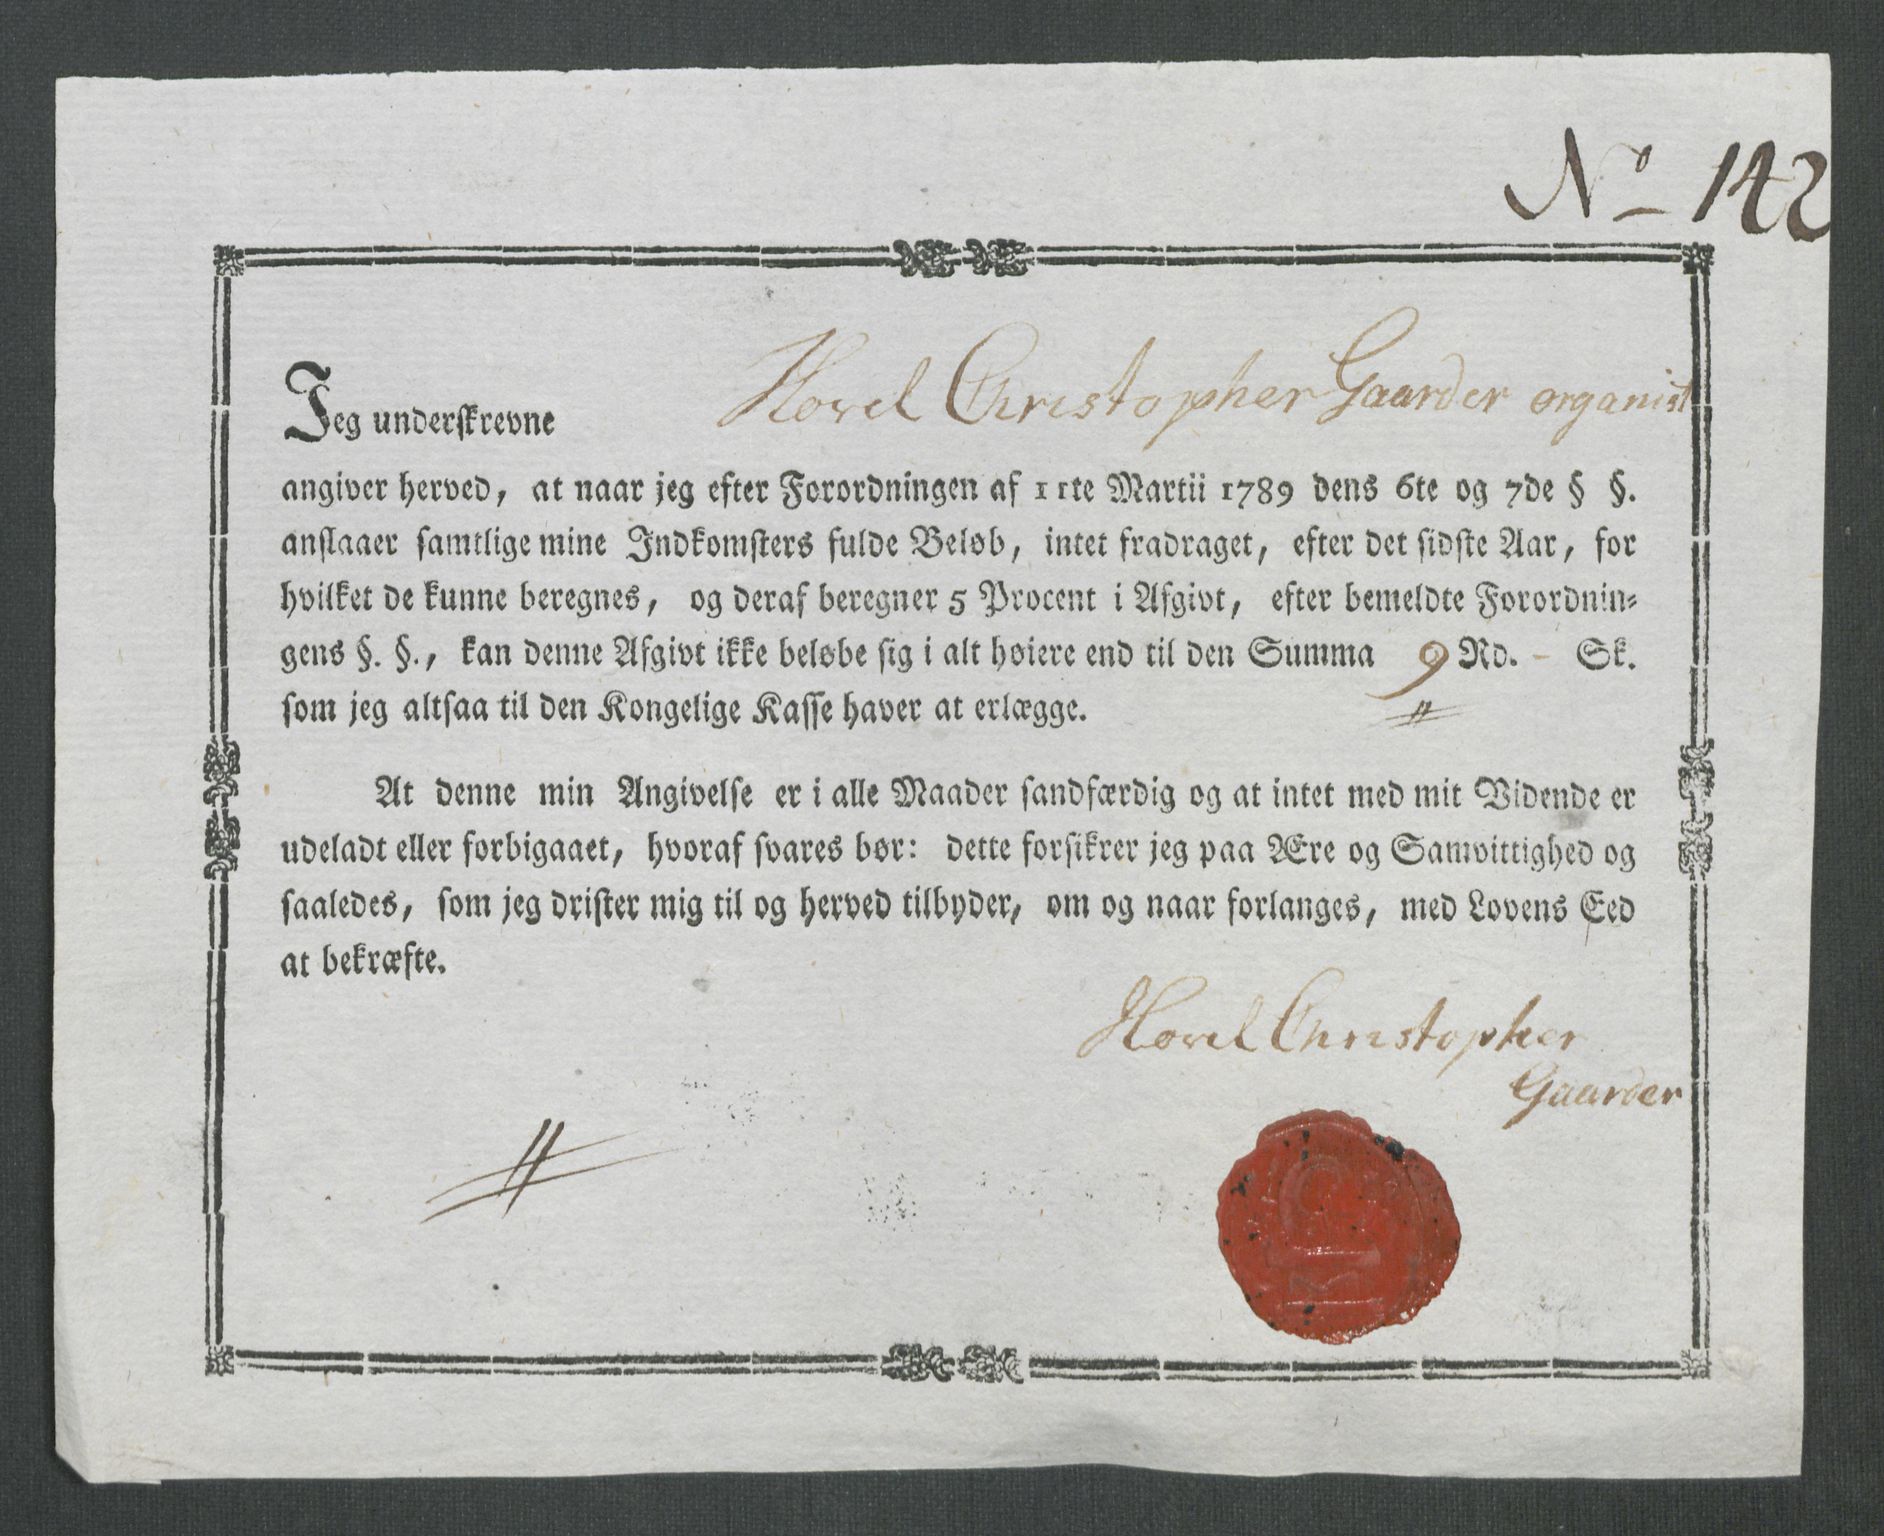 No 142
Jeg underskrevne Hovel Christopher Gaarder organist
angiver herved, at naar jeg efter Forordningen af 11te Martii 1789 dens 6te og 7de § §.
anslaaer samtlige mine Indkomsters fulde Beløb, intet fradraget, efter det sidste Aar, for
hvilket de kunne beregnes, og deraf beregner 5 Procent i Afgivt, efter bemeldte Forordnin⸗
gens §. §., kan denne Afgivt ikke beløbe sig i alt høiere end til den Summa 9 Rd. - Sk.
som jeg altsaa til den Kongelige Kasse haver at erlægge.
At denne min Angivelse er i alle Maader sandfærdig og at intet med mit Vidende er
udeladt eller forbigaaet, hvoraf svares bør: dette forsikrer jeg paa Ære og Samvittighed og
saaledes, som jeg drister mig til og herved tilbyder, om og naar forlanges, med Lovens Eed
at bekræfte.
Hovel Christopher
Gaarder